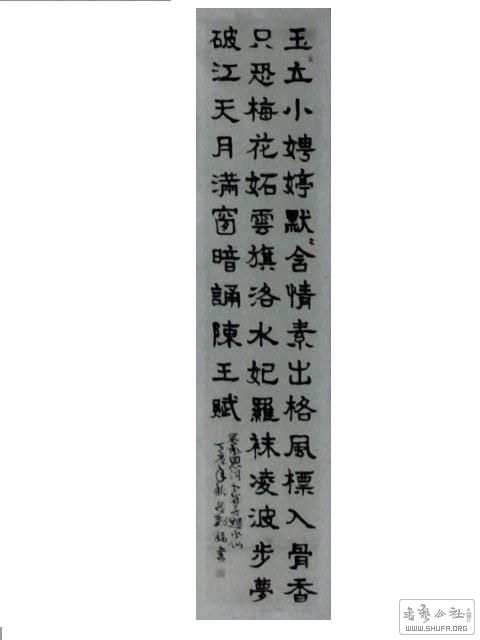 玉立小娉婷默〻含情素出格風標入骨香
只恐梅花妬雲旗洛水妃羅袜凌波步夢
破江天月滿窗暗誦陳王賦
書藝公社
WWW.SHUFA.ORG